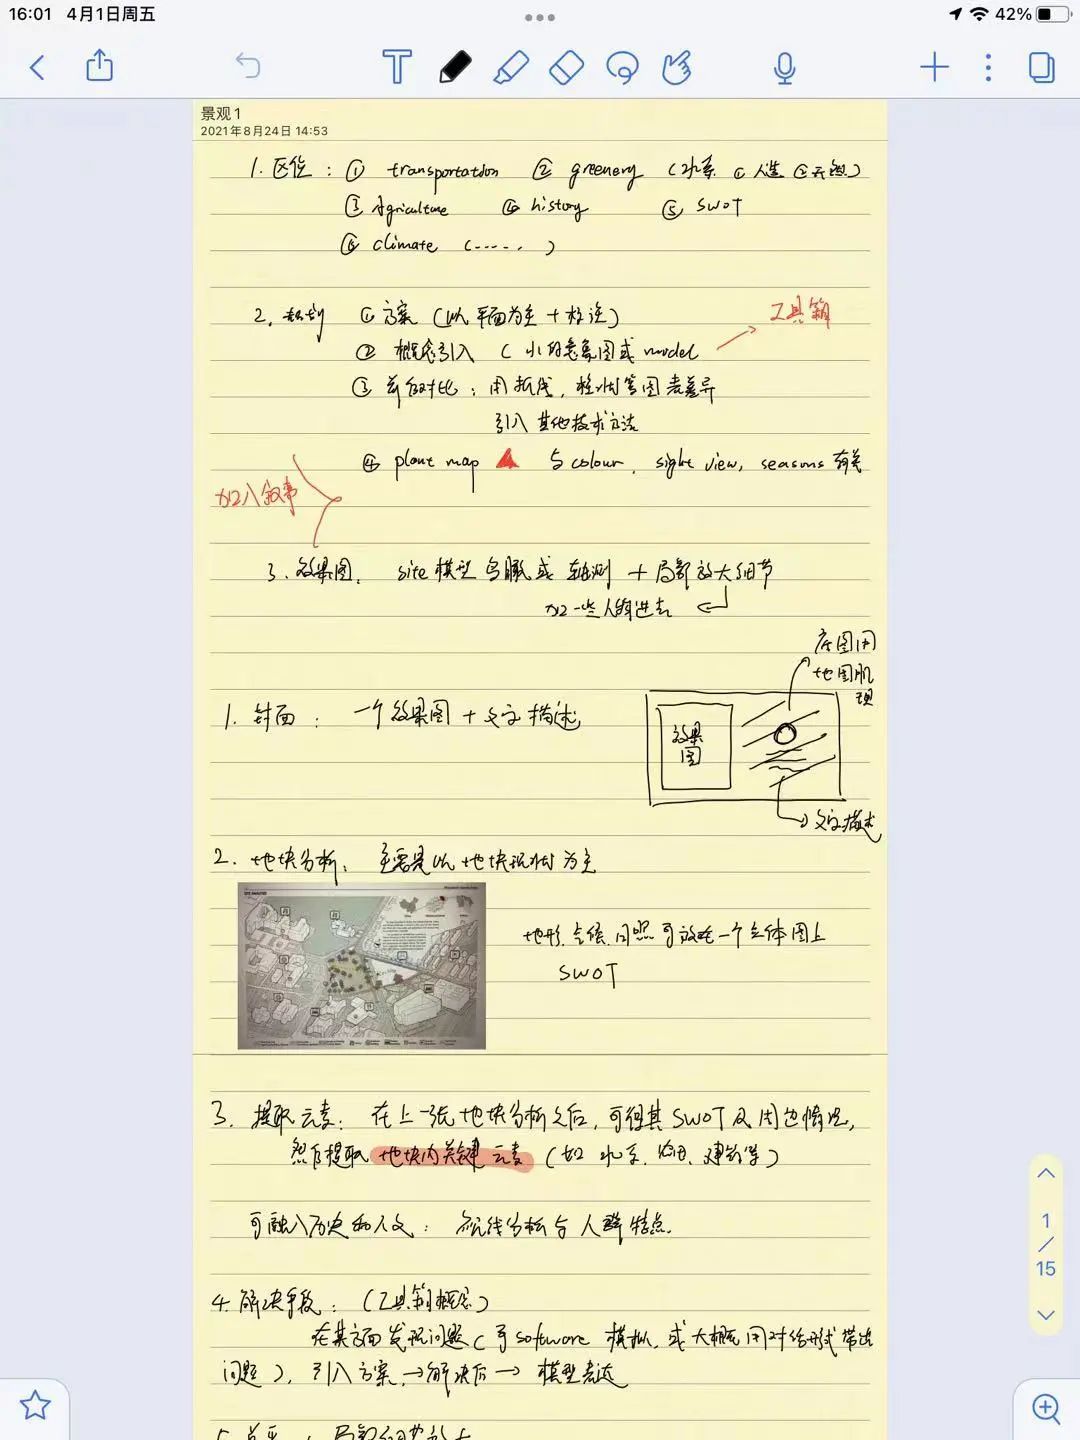 16:01 4月1日周五
42%
景观1
2021年8月24日 14:53
1. 区位：① transportation ② greenery （水系 ①人造 ②天然）
③ Agriculture ④ history ⑤ SWOT
⑥ climate （......）
2. 规划 ① 方案（以平面为主＋标注）
工具箱
② 概念引入（小的意象图或 model
③ 前后对比：用折线，柱状等图表差异
引入其他技术方法
④ plant map 与 colour, sight view, seasons 有关
加入叙事
3. 效果图， site 模型鸟瞰或轴测＋局部放大细节
加一些人物进去
底图用
地图肌
理
1. 封面：一个效果图＋文字描述
效果
图
文字描述
2. 地块分析：主要是以地块现状为主
SITE ANALYSIS
地形、气候、日照可放在一个立体图上
SWOT
3. 提取元素：在上一张地块分析之后，可得其 SWOT 及周边情况，
然后提取地块内关键元素（如水系、农田、建筑等）
可融入历史和人文：流线分析与人群特点.
4. 解决手段：（工具箱概念）
在某方面发现问题（与software 模拟，或大概用对话形式带出
问题），引入方案→解决后→模型表达
1
/
15